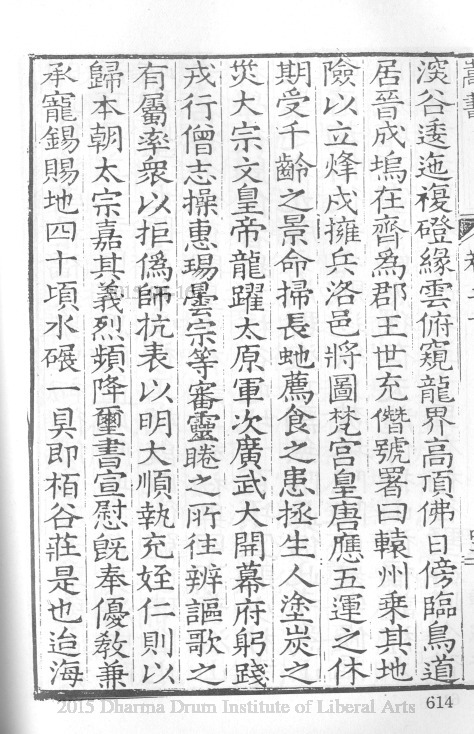 嵩書
溪谷逶迤複磴緣雲俯窺龍界高頂佛日傍臨鳥道
居晉成塢在齊為郡王世充僭號署曰轅州乘其地
險以立烽戍擁兵洛邑將圖梵宮皇唐應五運之休
期受千齡之景命掃長虵薦食之患拯生人塗炭之
災大宗文皇帝龍躍太原軍次廣武大開幕府躬踐
戎行僧志操惠瑒曇宗等審靈睠之所往辨謳歌之
有屬率衆以拒偽師抗表以明大順執充姪仁則以
歸本朝太宗嘉其義烈頻降璽書宣慰旣奉優敎兼
承寵錫賜地四十頃水碾一具即栢谷莊是也迨海
614
2015 Dharma Drum Institute of Liberal Arts